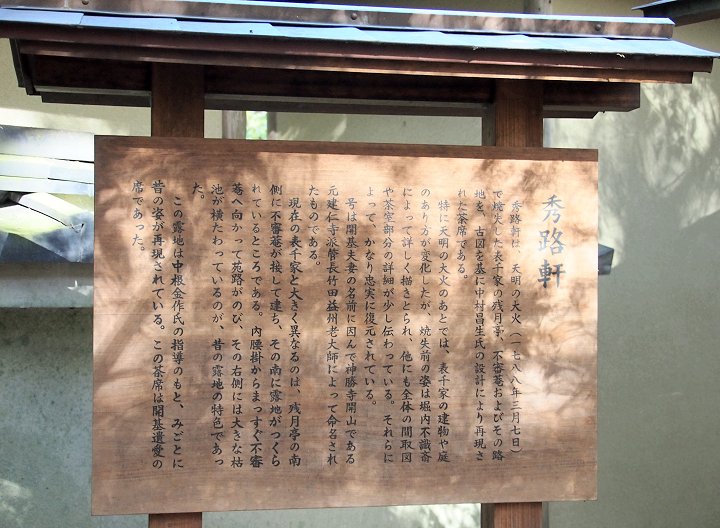 秀路軒
秀路軒は、天明の大火(一七八八年三月七日)
で焼失した表千家の残月亭、不審菴およびその路
地を、古図を基に中村昌生氏の設計により再現さ
れた茶席である。
特に天明の大火のあとでは、表千家の建物や庭
のあり方が変化したが、焼失前の姿は堀内不識斎
によって詳しく描きとられ、他にも全体の間取図
や茶室部分の詳細が少し伝わっている。それらに
よって、かなり忠実に復元されている。
号は開基夫妻の名前に因んで神勝寺開山である
元建仁寺派管長竹田益州老大師によって命名され
たものである。
現在の表千家と大きく異なるのは、残月亭の南
側に不審菴が接して建ち、その南に露地がつくら
れているところである。内腰掛からまっすぐ不審
菴へ向かって苑路がのび、その右側には大きな枯
池が横たわっているのが、昔の露地の特色であっ
た。
この露地は中根金作氏の指導のもと、みごとに
昔の姿が再現されている。この茶席は開基遺愛の
席であった。